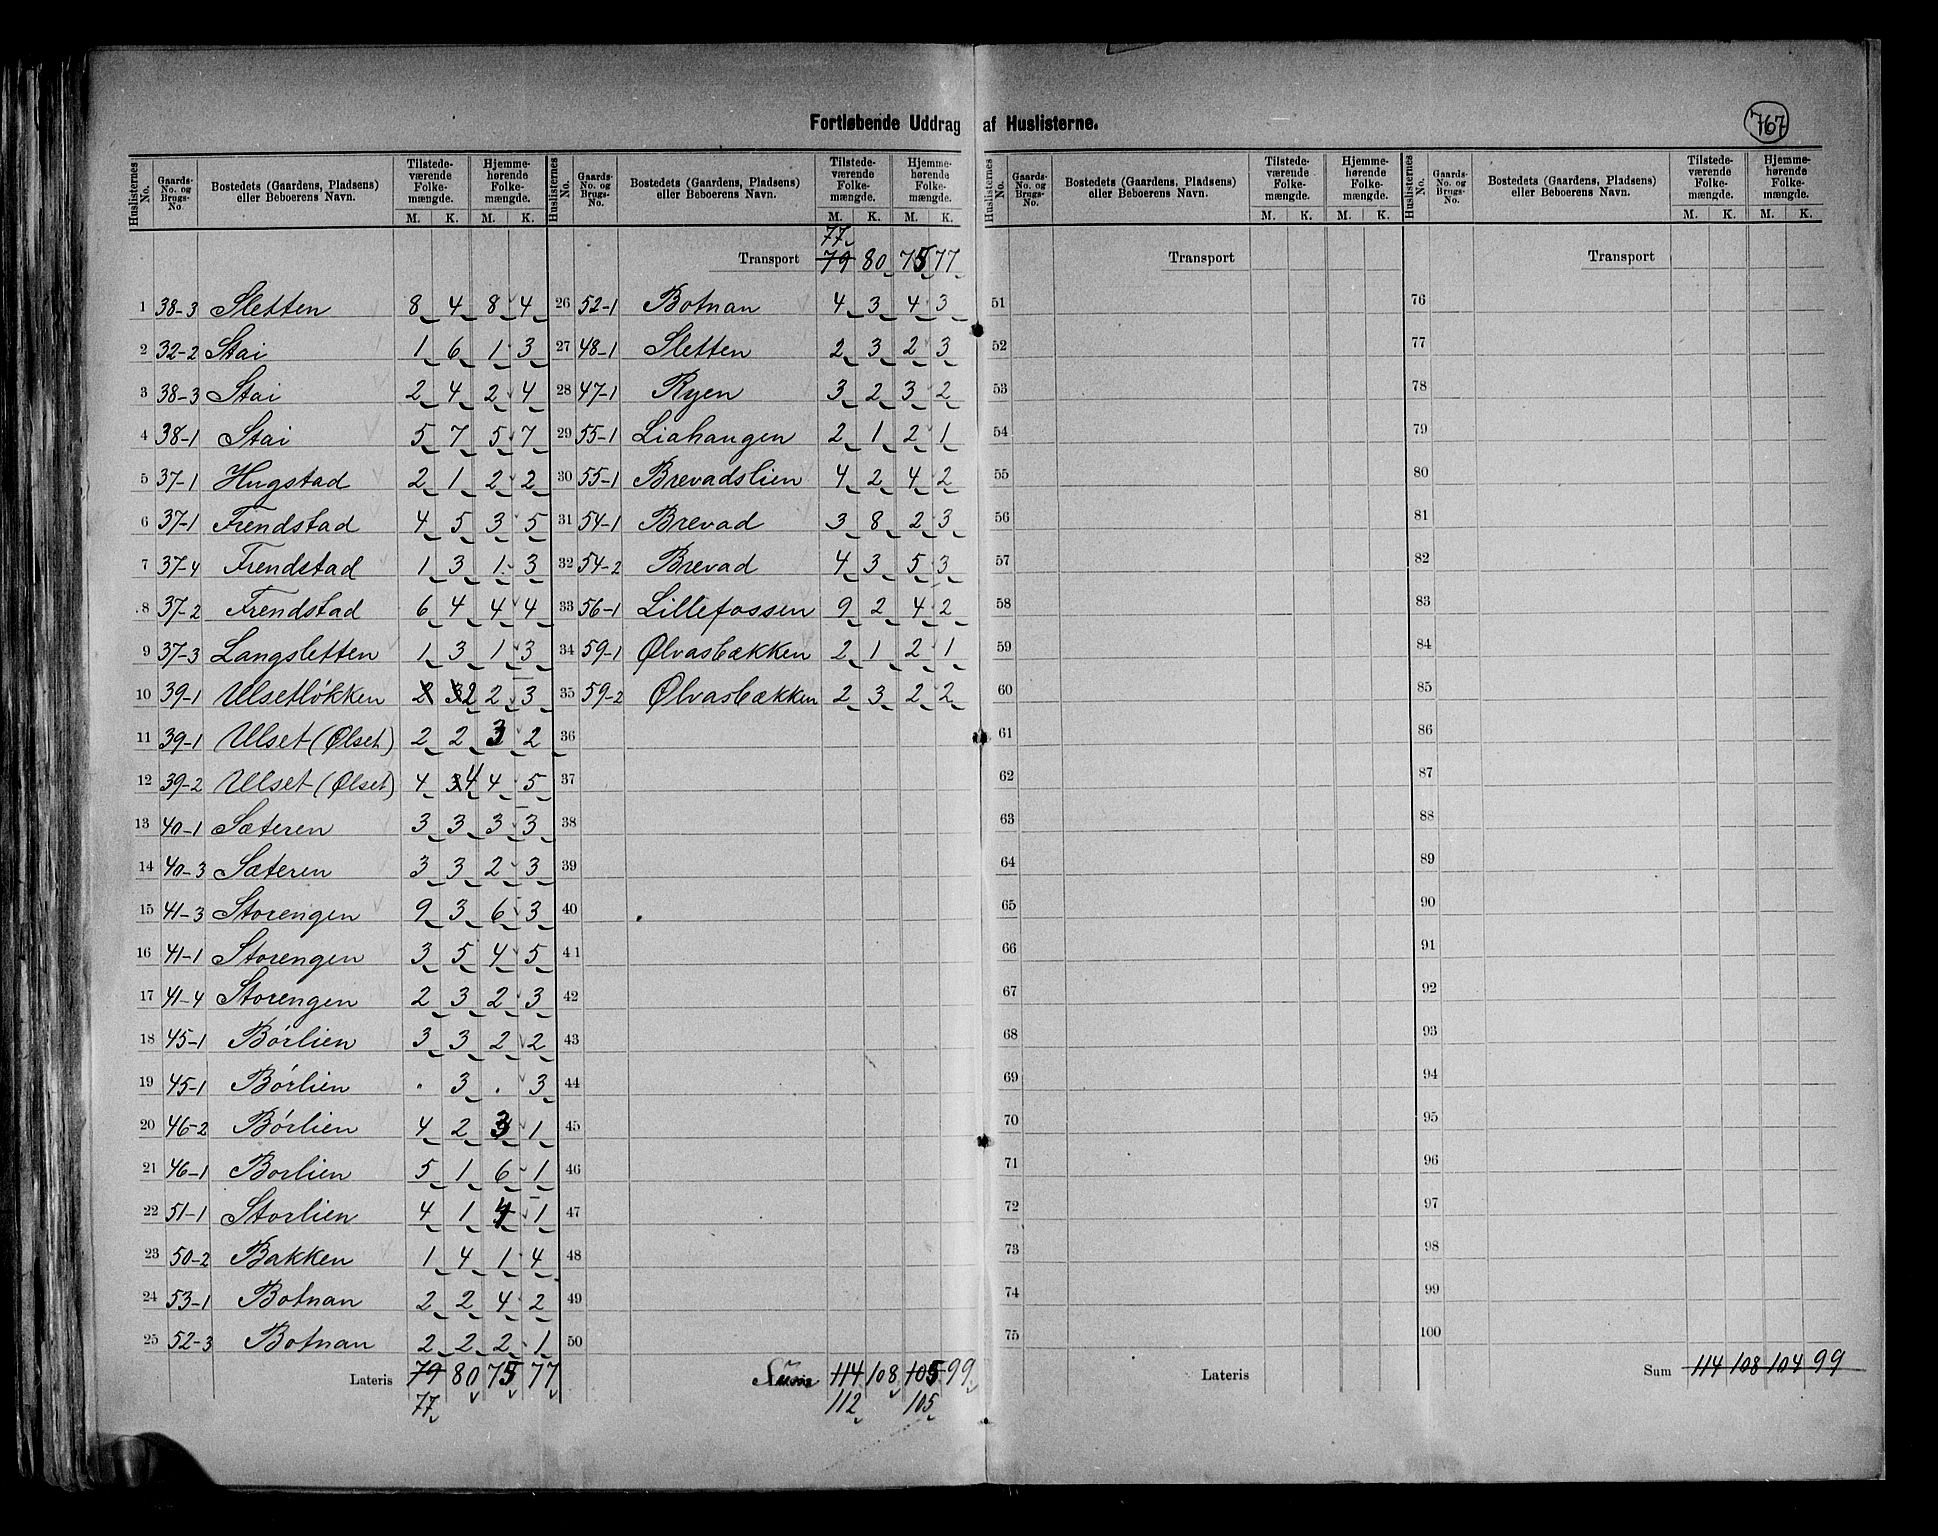 Fortløbende Uddrag af Huslisterne.
767
Huslisternes No. | Gaards-No. og Brugs-No. | Bostedets (Gaardens, Pladsens) eller Beboerens Navn. | Tilstedeværende Folkemængde. M. K. | Hjemmehørende Folkemængde. M. K.
1 38-3 Sletten 8 4 8 4
2 32-2 Stai 1 6 1 3
3 38-3 Stai 2 4 2 4
4 38-1 Stai 5 7 5 7
5 37-1 Hugstad 2 1 2 2
6 37-1 Trendstad 4 5 3 5
7 37-4 Trendstad 1 3 1 3
8 37-2 Trendstad 6 4 4 4
9 37-3 Langsletten 1 3 1 3
10 39-1 Ulsetløkken 2 3 2 2 3
11 39-1 Ulset (Ølset) 2 2 3 2
12 39-2 Ulset (Ølset) 4 3 4 4 5
13 40-1 Sæteren 3 3 3 3
14 40-3 Sæteren 3 3 2 3
15 41-3 Storengen 9 3 6 3
16 41-1 Storengen 3 5 4 5
17 41-4 Storengen 2 3 2 3
18 45-1 Børlien 3 3 2 2
19 45-1 Børlien . 3 . 3
20 46-2 Børlien 4 2 3 1
21 46-1 Borlien 5 1 6 1
22 51-1 Storlien 4 1 4 1
23 50-2 Bakken 1 4 1 4
24 53-1 Botnan 2 2 4 2
25 52-3 Botnan 2 2 2 1
Lateris 79 80 75 77
77
Huslisternes No. | Gaards-No. og Brugs-No. | Bostedets (Gaardens, Pladsens) eller Beboerens Navn. | Tilstedeværende Folkemængde. M. K. | Hjemmehørende Folkemængde. M. K.
77
Transport 79 80 75 77
26 52-1 Botnan 4 3 4 3
27 48-1 Sletten 2 3 2 3
28 47-1 Ryen 3 2 3 2
29 55-1 Liahaugen 2 1 2 1
30 55-1 Brevadslien 4 2 4 2
31 54-1 Brevad 3 8 2 3
32 54-2 Brevad 4 3 5 3
33 56-1 Lillefossen 9 2 4 2
34 59-1 Ølvasbækken 2 1 2 1
35 59-2 Ølvasbækken 2 3 2 2
36
37
38
39
40
41
42
43
44
45
46
47
48
49
50
Sum 114 108 105 99
112 105
Huslisternes No. | Gaards-No. og Brugs-No. | Bostedets (Gaardens, Pladsens) eller Beboerens Navn. | Tilstedeværende Folkemængde. M. K. | Hjemmehørende Folkemængde. M. K.
Transport
51
52
53
54
55
56
57
58
59
60
61
62
63
64
65
66
67
68
69
70
71
72
73
74
75
Lateris
Huslisternes No. | Gaards-No. og Brugs-No. | Bostedets (Gaardens, Pladsens) eller Beboerens Navn. | Tilstedeværende Folkemængde. M. K. | Hjemmehørende Folkemængde. M. K.
Transport
76
77
78
79
80
81
82
83
84
85
86
87
88
89
90
91
92
93
94
95
96
97
98
99
100
Sum 114 108 104 99